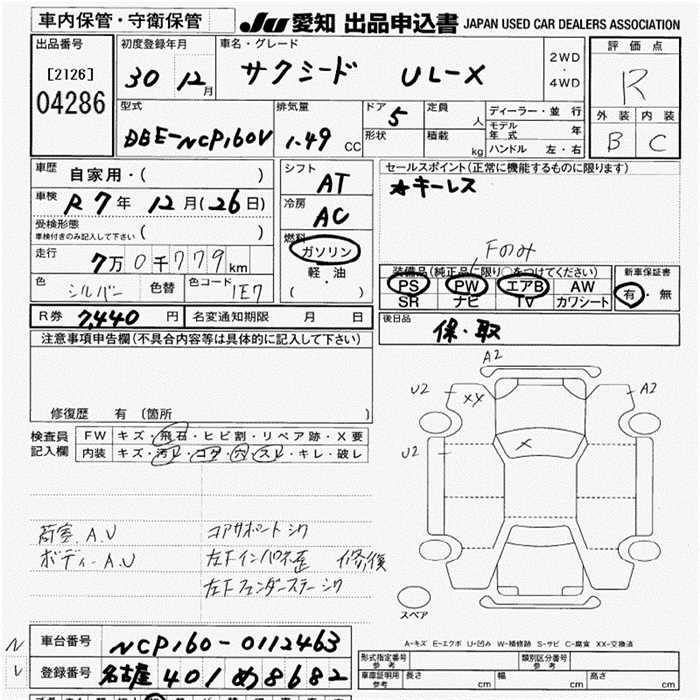 車内保管・守衛保管
JU 愛知 出品申込書 JAPAN USED CAR DEALERS ASSOCIATION
出品番号
[2126]
04286
初度登録年月
30 12月
車名・グレード
サクシード UL-X
2WD
・
4WD
評価点
R
外装 内装
B C
型式
DBE-NCP160V
排気量
1.49 CC
ドア
5
形状
定員
人
積載
kg
ディーラー・並行
モデル年式 年
ハンドル 左・右
車歴
自家用・( )
車検
R7年 12月(26日)
受検形態
車検付きのみ記入して下さい ( )
走行
7万0千779km
色 シルバー 色替 色コード 1E7
シフト
AT
冷房
AC
燃料
ガソリン
軽・油
( ・ )
セールスポイント(正常に機能するものに限ります)
★キーレス
Fのみ
装備品(純正品に限り○をつけてください)
PS PW エアB AW
SR ナビ TV カワシート
新車保証書
有・無
R券 7,440円 名変通知期限 月 日
後日品
保・取
注意事項申告欄(不具合内容等は具体的に記入して下さい)
修復歴 有 (箇所 )
検査員記入欄
FW キズ・飛石・ヒビ割・リペア跡・X要
内装 キズ・汚レ・コゲ・穴・スレ・キレ・破レ
荷室 A.U
ボディーA.U
コアサポートシワ
左Fインパネ歪 修復
左Fフェンダーステーシワ
A2
U2 XX A2
U2 X
スペア
A-キズ E-エクボ U-凹み W-補修跡 S-サビ C-腐食 XX-交換済
車台番号 NCP160-0112463
登録番号 名古屋 401 め 8682
形式指定番号 参考
類別区分番号 参考
車庫証明用 参考 長さ cm 幅 cm 高さ cm